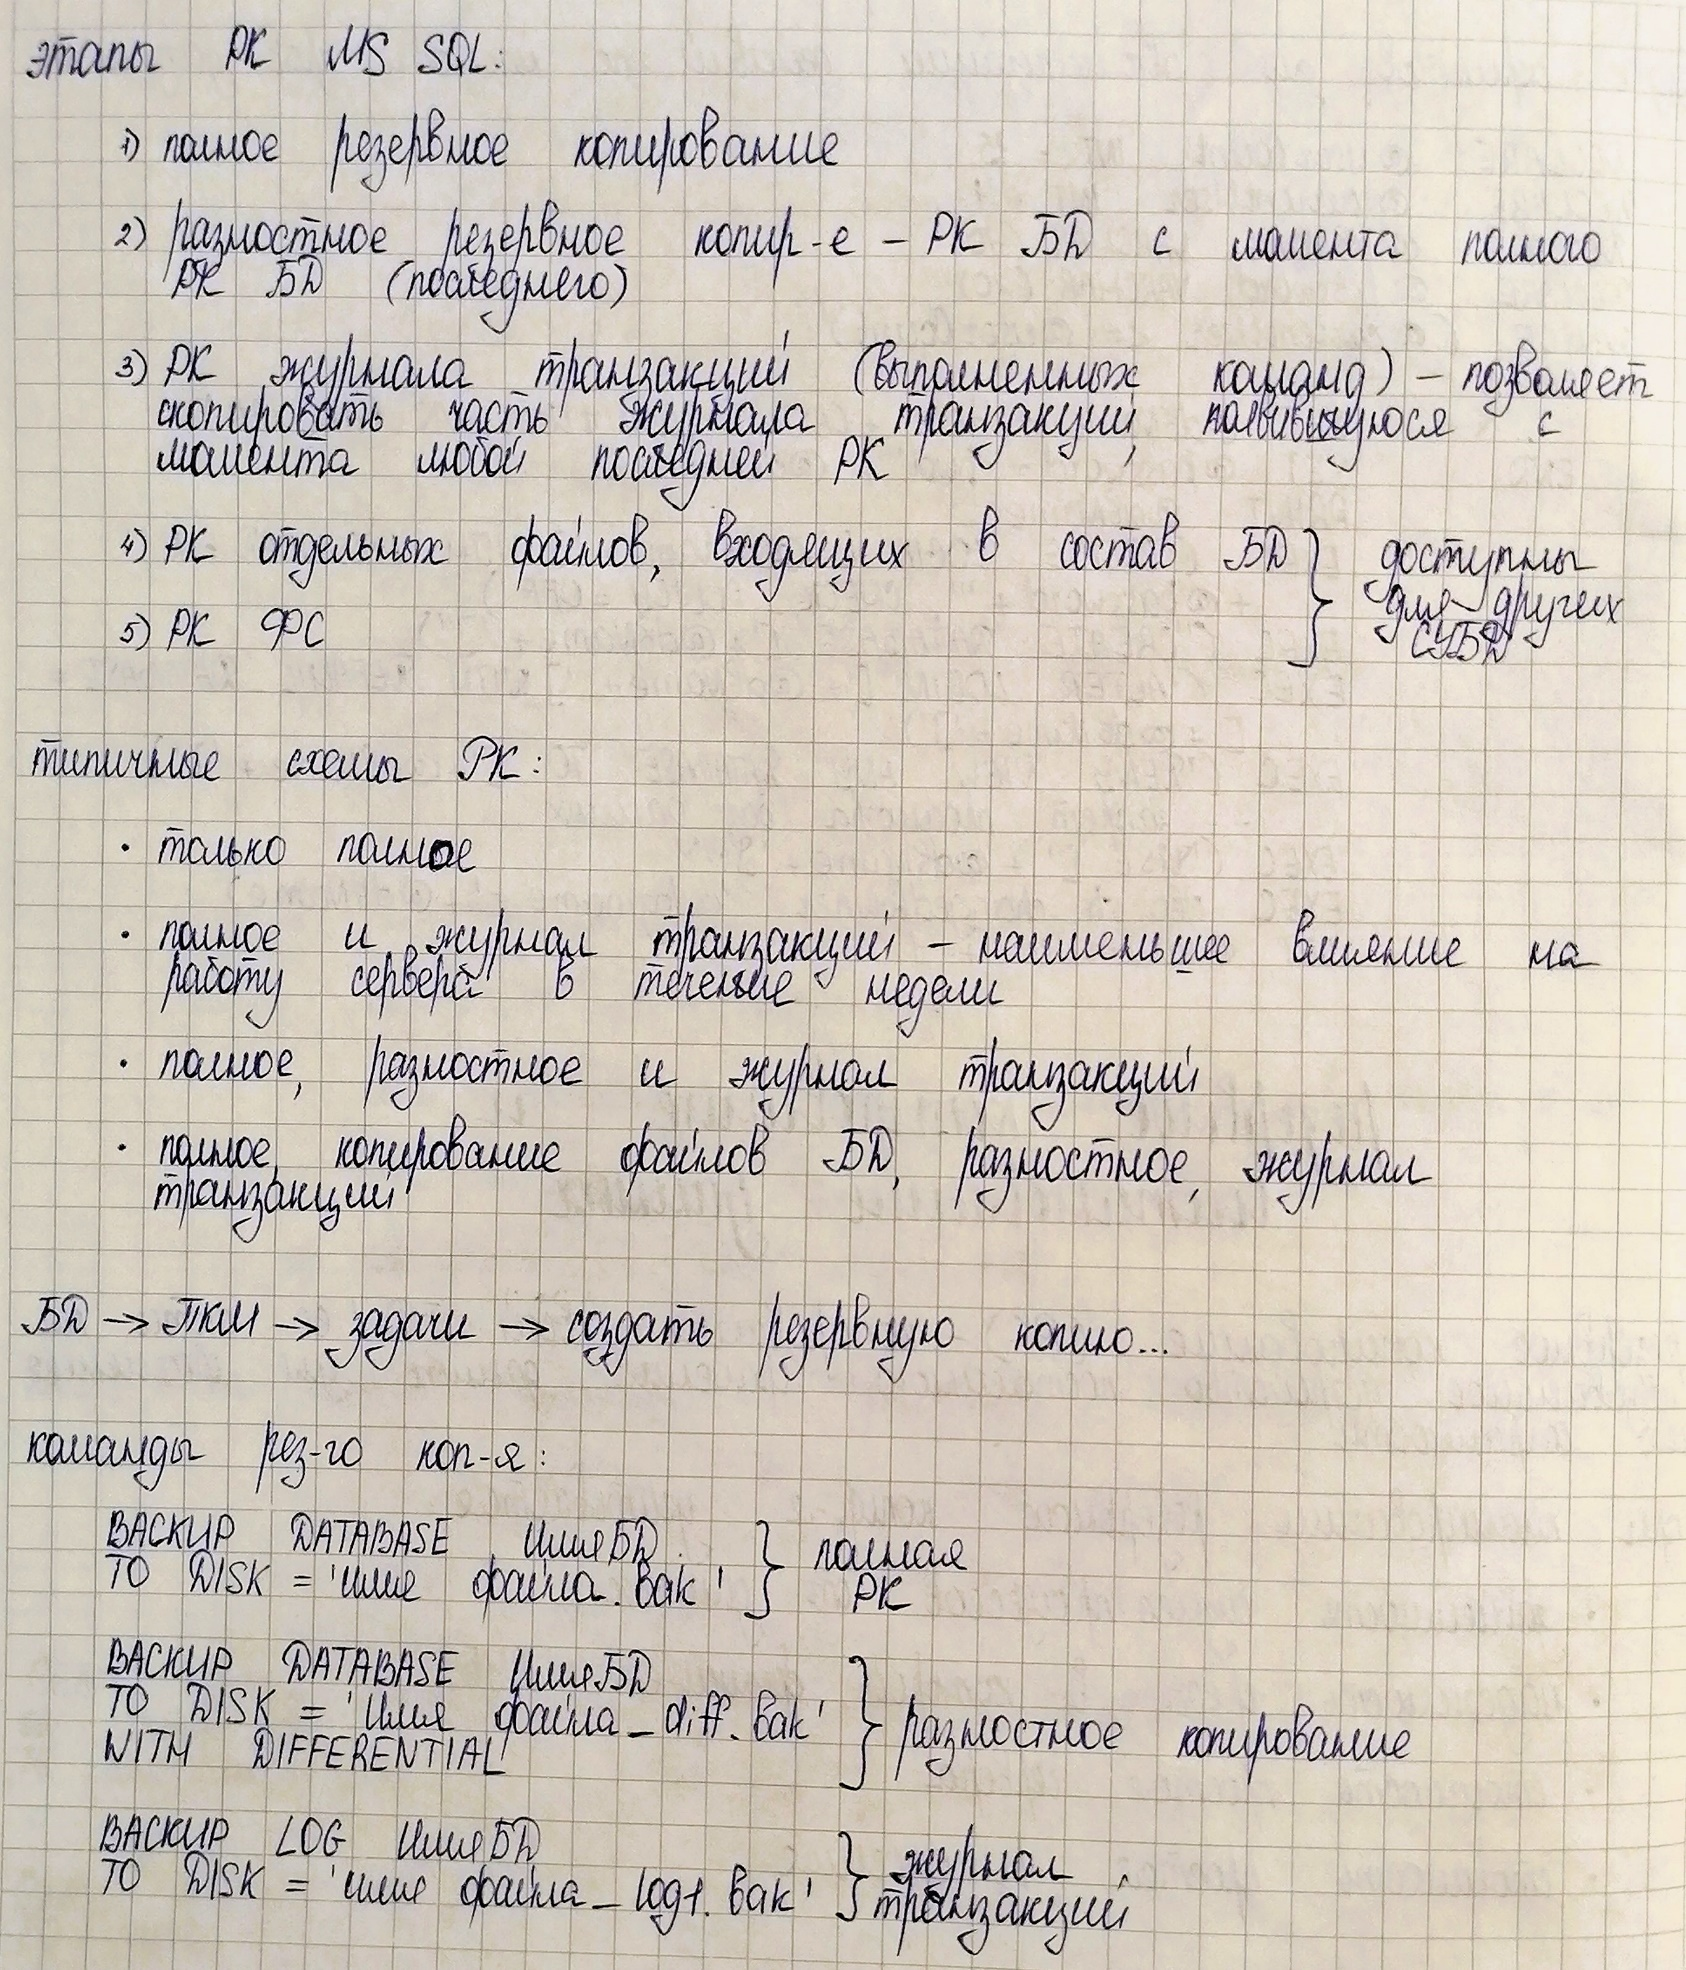 этапы РК MS SQL:
1) полное резервное копирование
2) разностное резервное копир-е – РК БД с момента полного
РК БД (последнего)
3) РК журнала транзакций (выполненных команд) – позволяет
скопировать часть журнала транзакций, появившуюся с
момента любой последней РК
4) РК отдельных файлов, входящих в состав БД } доступны
для других
СУБД
5) РК ФС
типичные схемы РК:
· только полное
· полное и журнал транзакций – наименьшее влияние на
работу сервера в течение недели
· полное, разностное и журнал транзакций
· полное, копирование файлов БД, разностное, журнал
транзакций
БД → ПКМ → задачи → создать резервную копию...
команды рез-го коп-я:
BACKUP DATABASE ИмяБД
TO DISK = 'имя файла.bak' } полная
РК
BACKUP DATABASE ИмяБД
TO DISK = 'имя файла_diff.bak'
WITH DIFFERENTIAL } разностное копирование
BACKUP LOG ИмяБД
TO DISK = 'имя файла_log1.bak' } журнал
транзакций